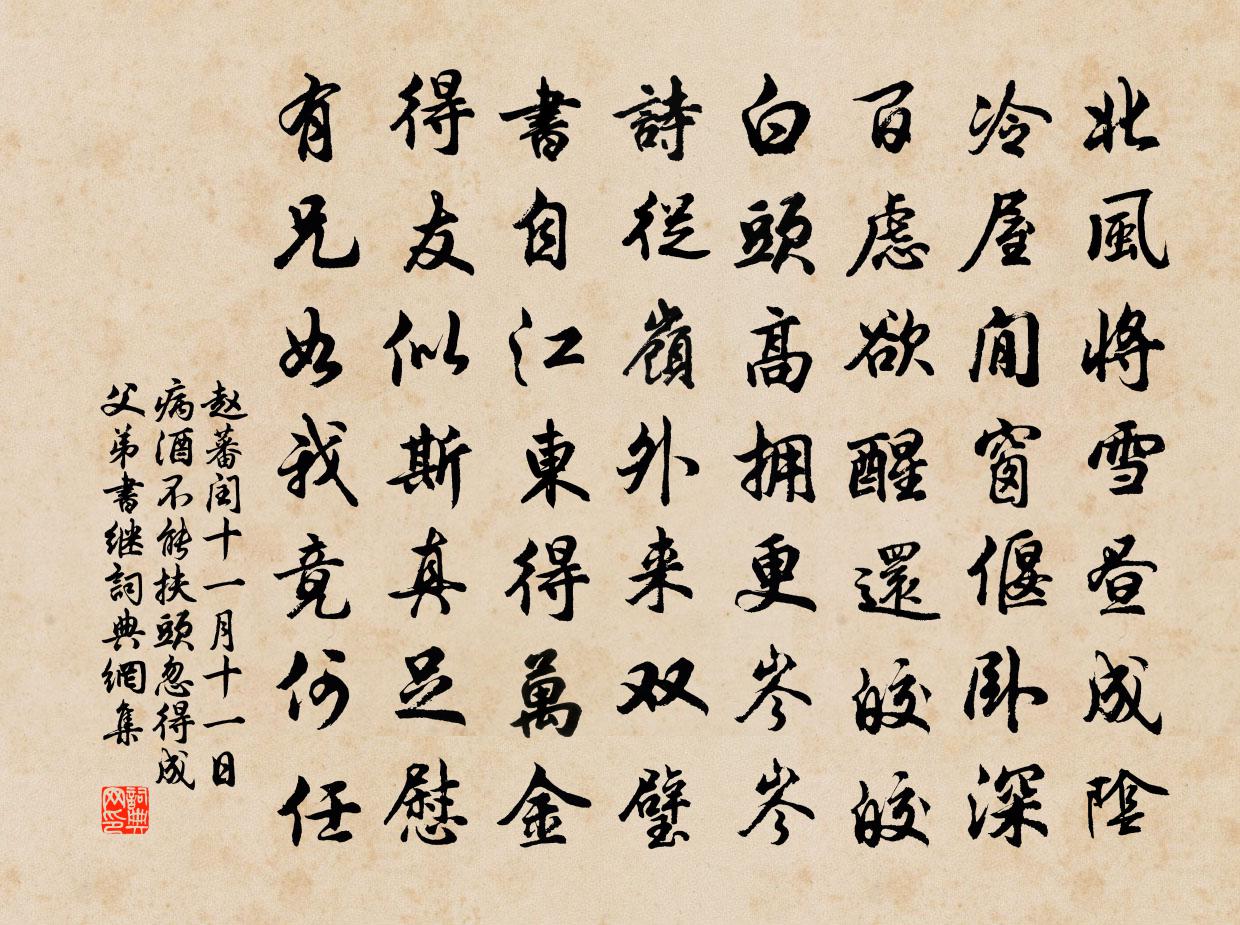 北風將雪昼成陰
冷屋閒窗偃卧深
百慮欲醒還皎皎
白頭高拥更岑岑
詩從嶺外来双璧
書自江東得萬金
得友似斯真足慰
有兄如我竟何任
赵蕃闰十一月十一日
病酒不能扶頭忽得成
父弟書继詞典網集
詞典网印